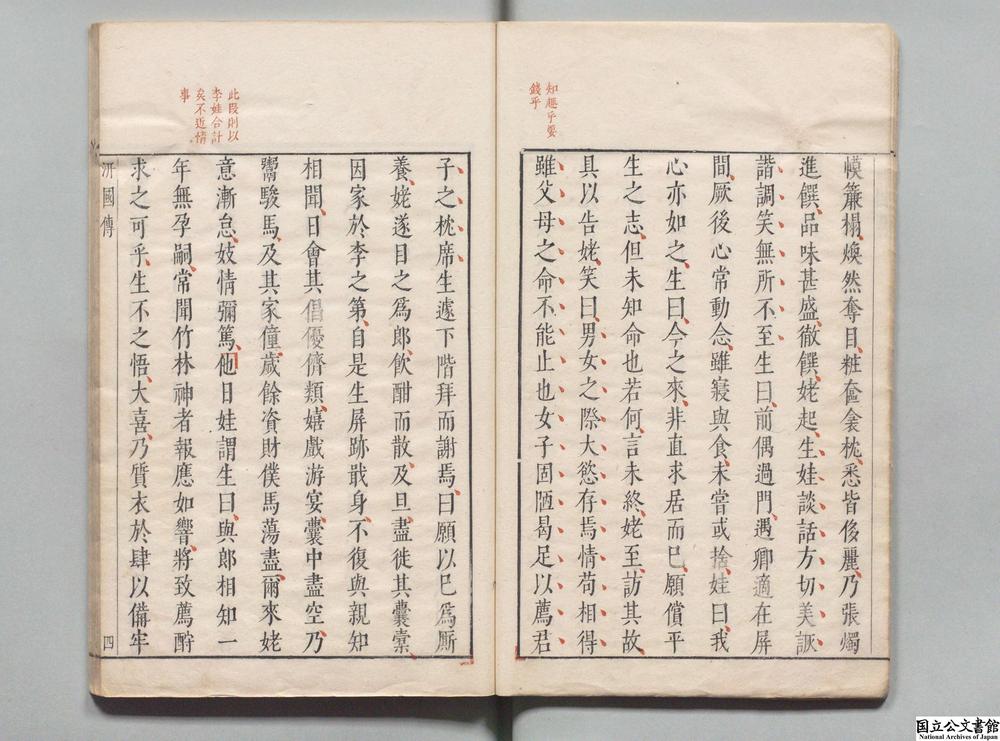 知趣乎要
錢乎
幙簾榻煥然奪目粧奩衾枕悉皆侈麗乃張燭
進饌品味甚盛徹饌姥起生娃談話方切美詼
諧調笑無所不至生曰前偶過門遇卿適在屏
間厥後心常動念雖寢與食未嘗或捨娃曰我
心亦如之生曰今之來非直求居而已願償平
生之志但未知命也若何言未終姥至訪其故
具以告姥笑曰男女之際大慾存焉情苟相得
雖父母之命不能止也女子固陋曷足以薦君
此段則以
李娃合計
矣不近情
事
子之枕席生遂下階拜而謝焉曰願以已爲厮
養姥遂目之爲郎飲酣而散及旦盡徙其囊橐
因家於李之第自是生屏跡戢身不復與親知
相聞日會其倡優儕類嬉戲游宴囊中盡空乃
鬻駿馬及其家僮歲餘資財僕馬蕩盡爾來姥
意漸怠妓情彌篤他日娃謂生曰與郎相知一
年無孕嗣常聞竹林神者報應如響將致薦酹
求之可乎生不之悟大喜乃質衣於肆以備牢
汧國傳
四
国立公文書館
National Archives of Japan